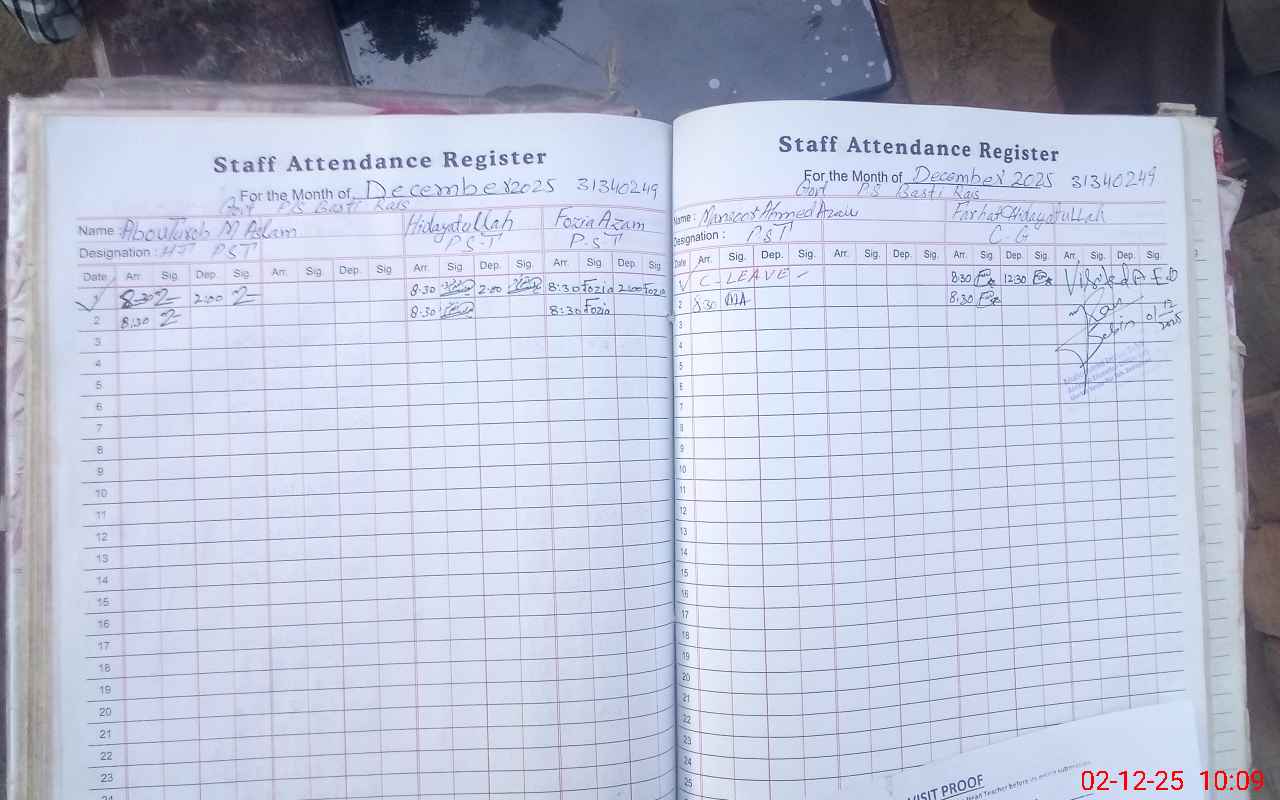 Staff Attendance Register
For the Month of December 2025 31340249
Govt P/S Basti Rais
Name : M Aslam Hidayatullah Fozia Azam
Designation : HT PST P.S.T P.S.T
Date Arr. Sig. Dep. Sig. Arr. Sig. Dep. Sig Arr. Sig. Dep. Sig. Arr. Sig. Dep. Sig.
1 8:30 2:00 8:30 2:00 8:30 Fozia 2:00 Fozia
2 8:30 8:30 8:30 Fozia
3
4
5
6
7
8
9
10
11
12
13
14
15
16
17
18
19
20
21
22
23
24
Staff Attendance Register
For the Month of December 2025 31340249
Govt P.S Basti Rais
Name : Ahmed Farhat Hidayatullah
Designation : PST C-G
Date Arr. Sig. Dep. Sig. Arr. Sig. Dep. Sig. Arr. Sig. Dep. Sig. Arr. Sig. Dep. Sig.
C-LEAVE 8:30 12:30 Visited AEO
2 8:30 MA 8:30
01/12/2025
3
4
5
6
7
8
9
10
11
12
13
14
15
16
17
18
19
20
21
22
23
24
25
VISIT PROOF
Head Teacher before its online submission.
02-12-25 10:09